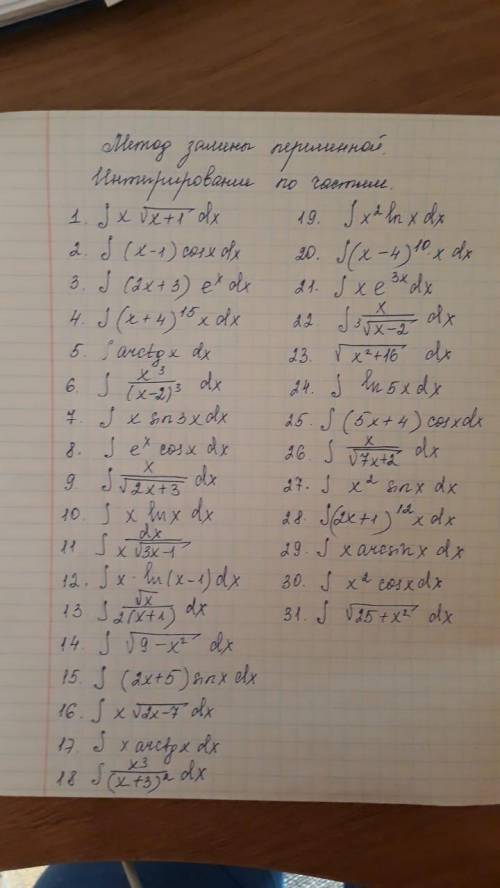 Метод замены переменной.
Интегрирование по частям.
1. ∫ x √(x+1) dx
2. ∫ (x-1) cosx dx
3. ∫ (2x+3) eˣ dx
4. ∫ (x+4)¹⁵ x dx
5. ∫ arctgx dx
6. ∫ x³/(x-2)³ dx
7. ∫ x sin3x dx
8. ∫ eˣ cosx dx
9. ∫ x/√(2x+3) dx
10. ∫ x lnx dx
11. ∫ dx/(x√(3x-1))
12. ∫ x · ln(x-1) dx
13. ∫ √x/(2(x+1)) dx
14. ∫ √(9-x²) dx
15. ∫ (2x+5) sinx dx
16. ∫ x √(2x-7) dx
17. ∫ x arctgx dx
18. ∫ x³/(x+3)² dx
19. ∫ x² ln x dx
20. ∫ (x-4)¹⁰ x dx
21. ∫ x e³ˣ dx
22. ∫ x/³√(x-2) dx
23. √(x²+16) dx
24. ∫ ln5x dx
25. ∫ (5x+4) cosx dx
26. ∫ x/√(7x+2) dx
27. ∫ x² sinx dx
28. ∫ (2x+1)¹² x dx
29. ∫ x arcsinx dx
30. ∫ x² cosx dx
31. ∫ √(25+x²) dx